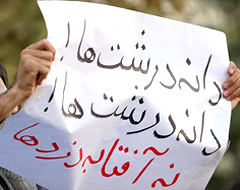 دانه درشت ها!
دانه درشت ها!
نه آفتابه دزدها